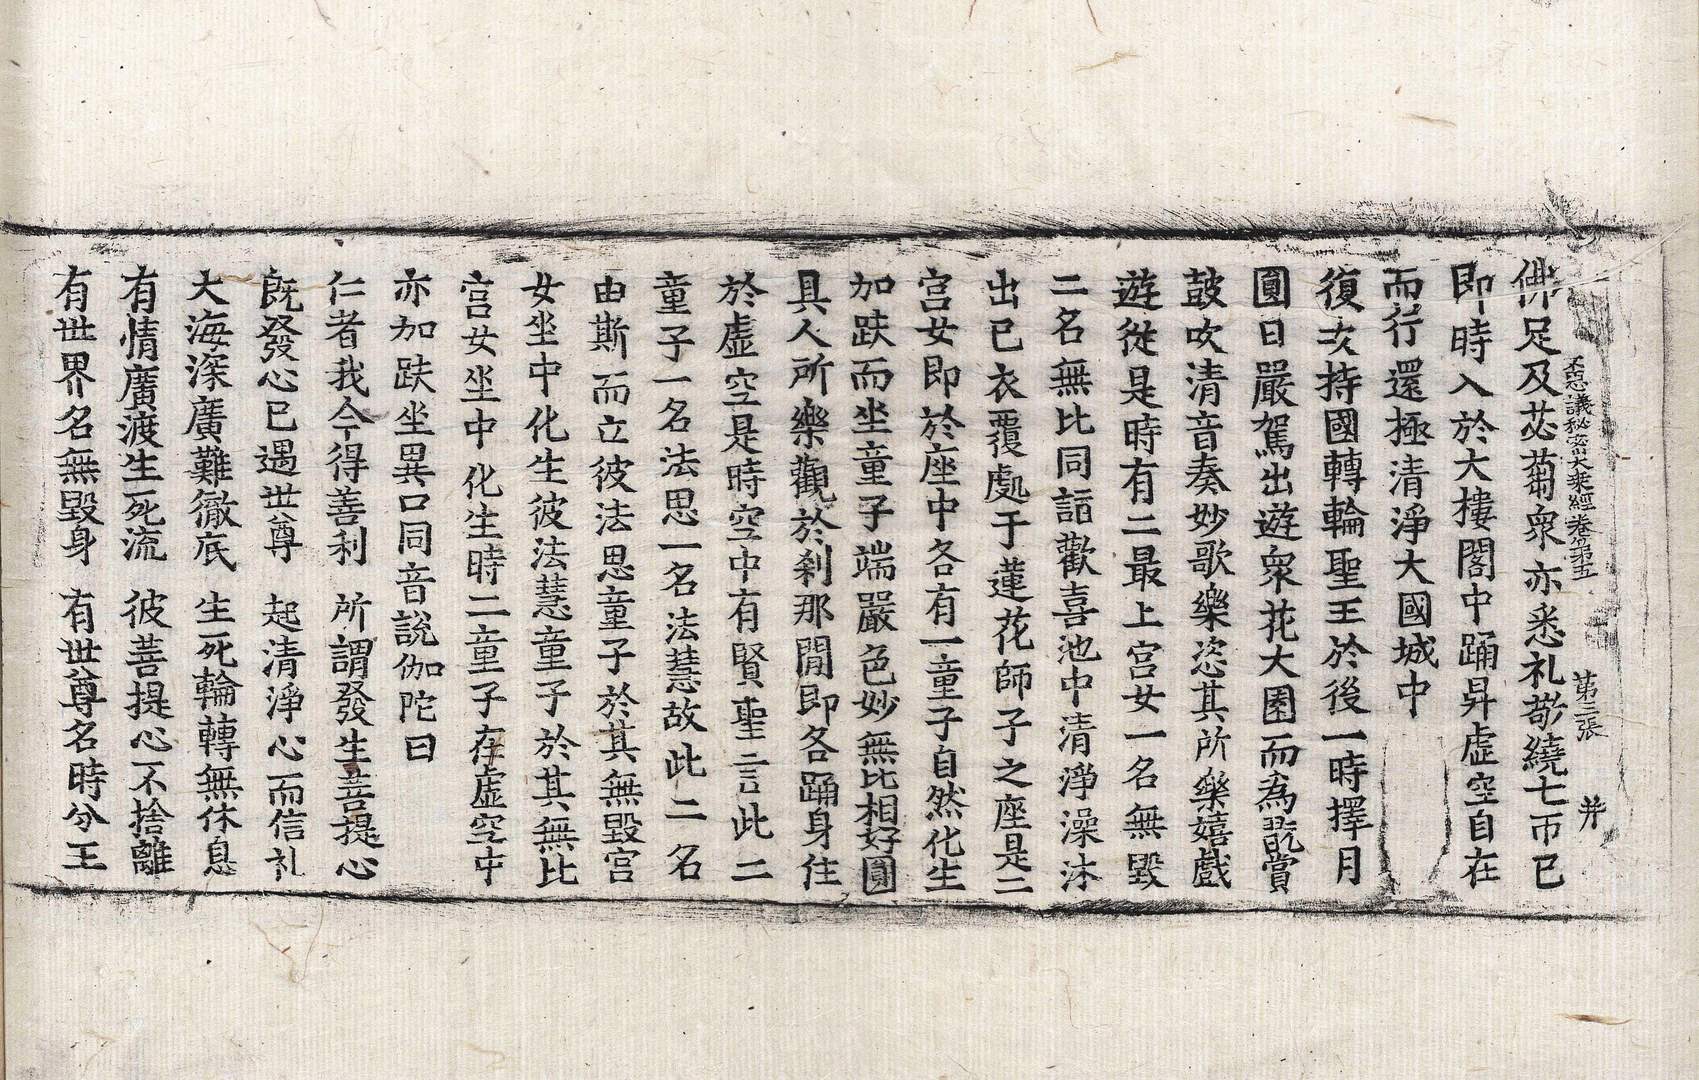 思議秘密大乘經卷第五 第三張 并
佛足及苾蒭衆亦悉礼敬繞七帀已
即時入於大樓閣中踊昇虛空自在
而行還極清淨大國城中
復次持國轉輪聖王於後一時擇月
圓日嚴駕出遊衆花大園而為翫賞
鼓吹清音奏妙歌樂恣其所樂嬉戲
遊從是時有二最上宮女一名無毀
二名無比同詣歡喜池中清淨澡沐
出已衣覆處于蓮花師子之座是二
宮女即於座中各有一童子自然化生
加趺而坐童子端嚴色妙無比相好圓
具人所樂觀於剎那閒即各踊身住
於虛空是時空中有賢聖言此二
童子一名法思一名法慧故此二名
由斯而立彼法思童子於其無毀宮
女坐中化生彼法慧童子於其無比
宮女坐中化生時二童子存虛空中
亦加趺坐異口同音說伽陀曰
仁者我今得善利 所謂發生菩提心
既發心已遇世尊 起清淨心而信礼
大海深廣難徹底 生死輪轉無休息
有情廣渡生死流 彼菩提心不捨離
有世界名無毀身 有世尊名時分王